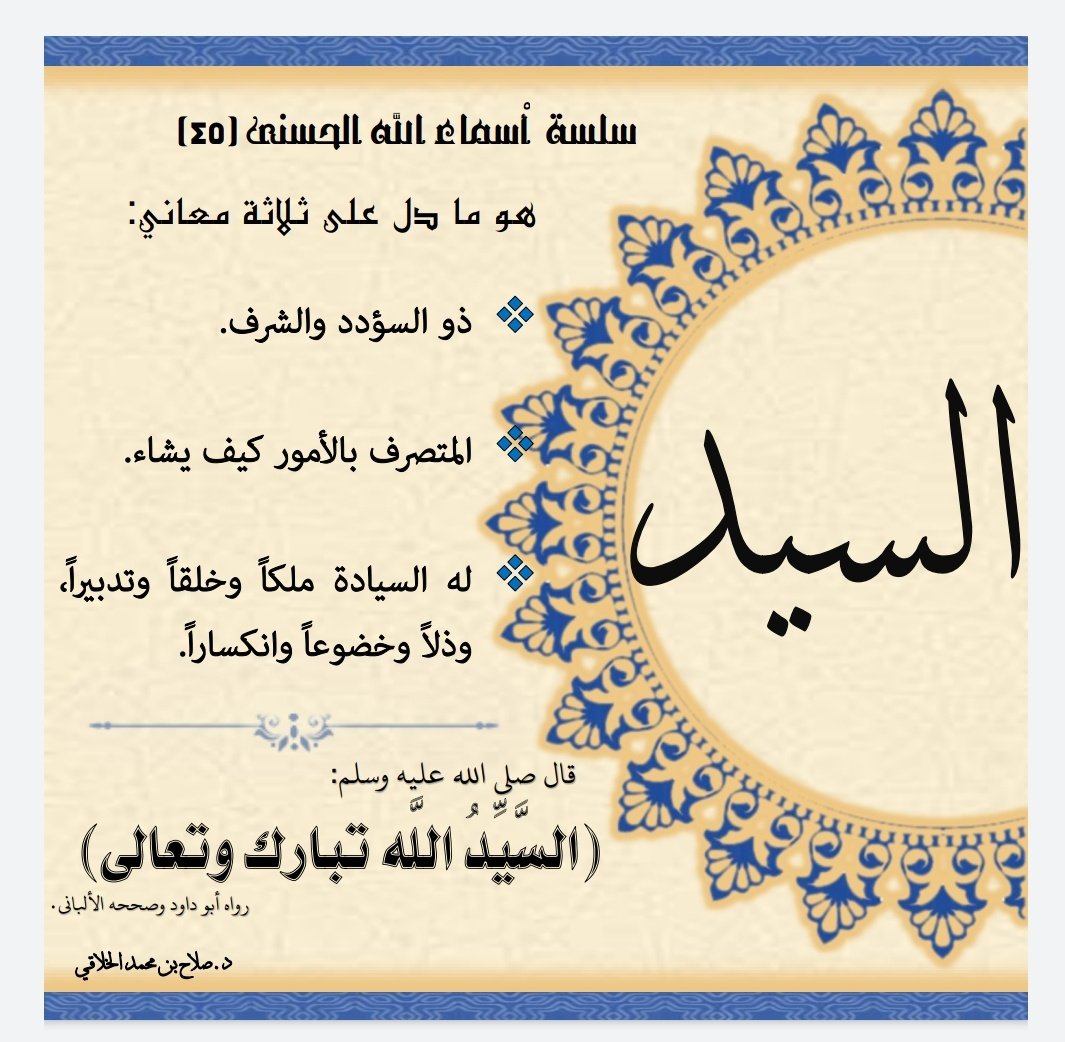 سلسة أسماء الله الحسنى (٤٥)
هو ما دل على ثلاثة معاني:
ذو السؤدد والشرف.
المتصرف بالأمور كيف يشاء.
له السيادة ملكاً وخلقاً وتدبيراً،
وذلاً وخضوعاً وانكساراً.
السيد
قال صلى الله عليه وسلم:
(السَّيِّدُ اللَّه تبارك وتعالى)
رواه أبو داود وصححه الألبانى.
د.صلاح بن محمد الخلاقي